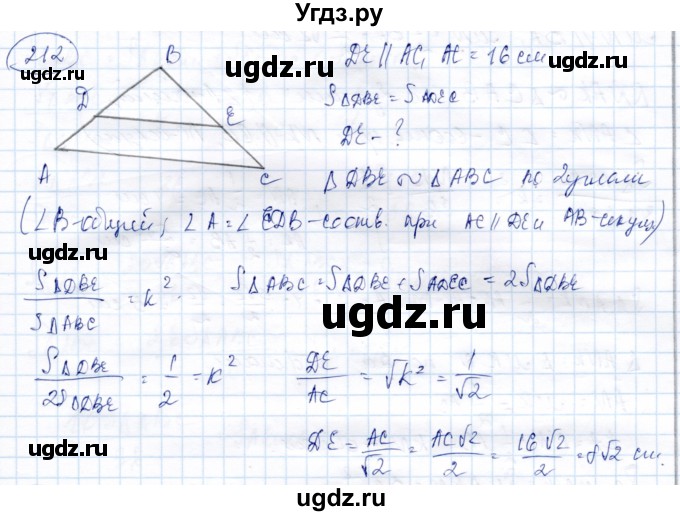 Угдз.ру
212
ugdz.ru
B
D
E
A
C
DE || AC, AC = 16 см
ugdz.ru
S△DBE = SADEC
DE - ?
ugdz.ru
△DBE ∾ △ABC по 2 углам
(∠B-общий; ∠A = ∠EDB-соотв. при AC || DE и AB-секущ)
S△DBE / S△ABC = k²
S△ABC = S△DBE + SADEC = 2S△DBE
ugdz.ru
S△DBE / 2S△DBE = 1/2 = k²
DE/AC = √k² = 1/√2
ugdz.ru
DE = AC/√2 = AC√2/2 = 16√2/2 = 8√2 см.
ugdz.ru
ugdz.ru
ugdz.ru